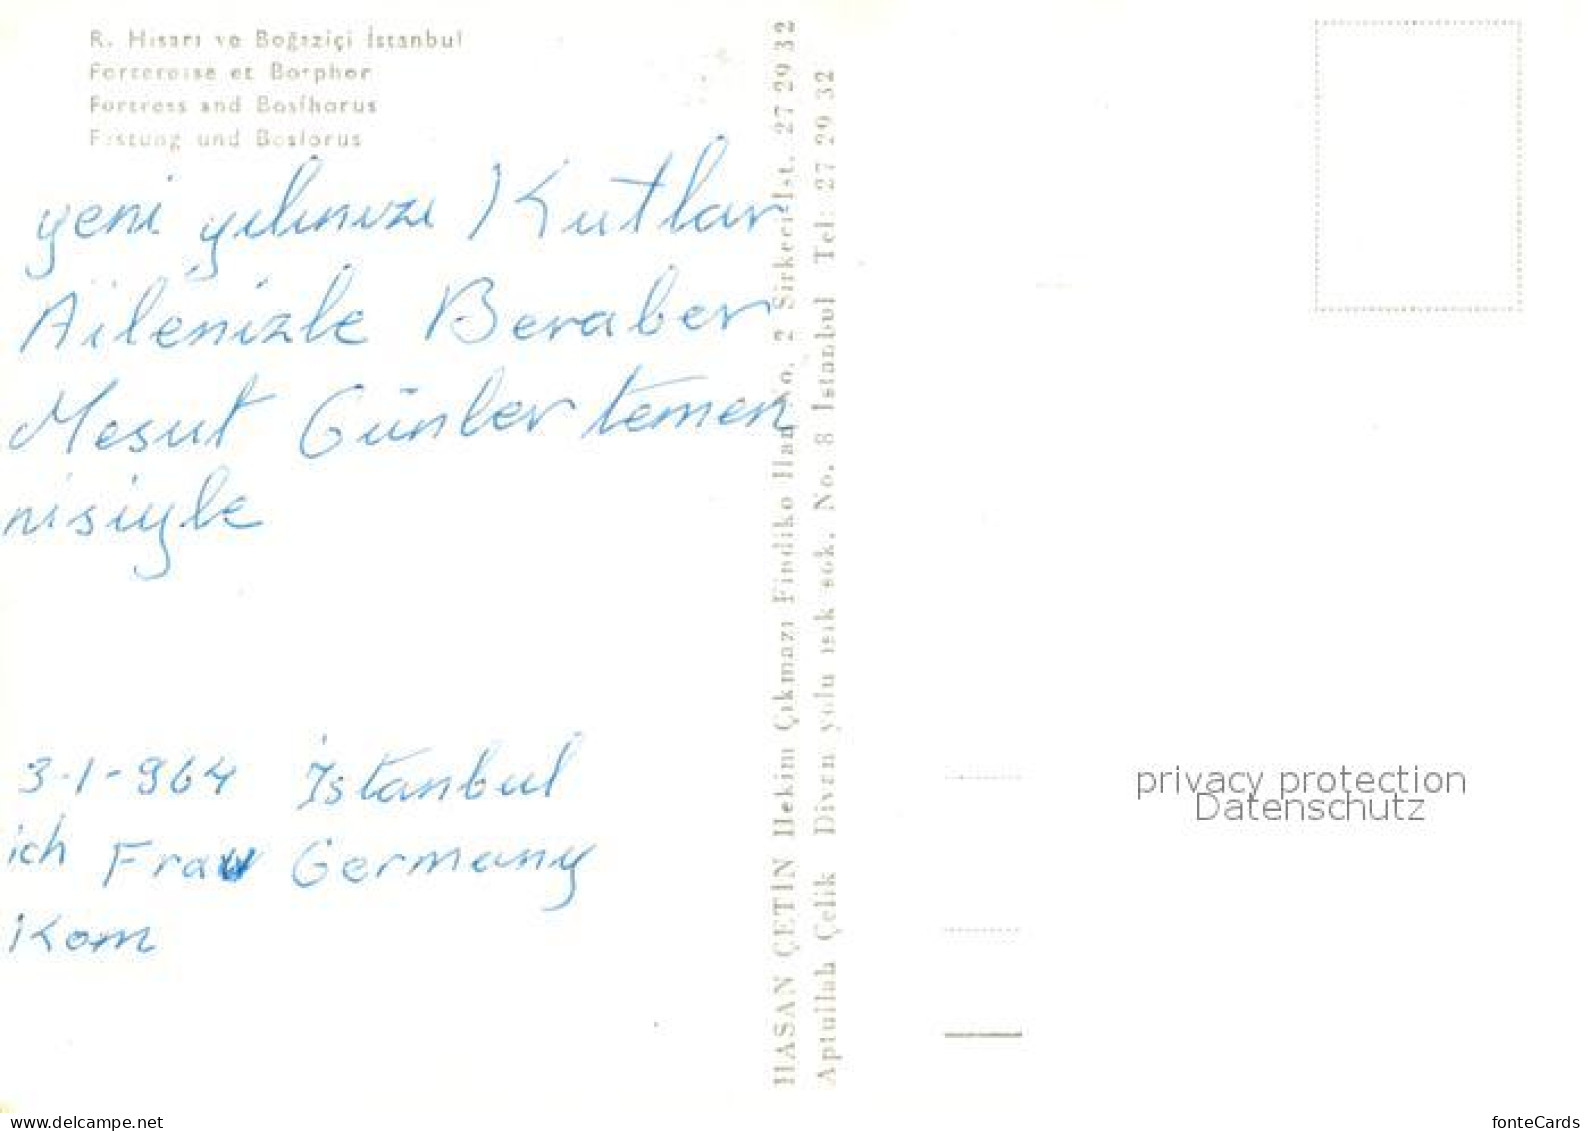 R. Hısarı ve Boğaziçi İstanbul
Forteresse et Borphor
Fortress and Bosfhorus
Festung und Bosforus
yeni yılınızı Kutlar
Ailenizle Beraber
Mesut Günler temen
nisiyle
3-1-964 İstanbul
ich Frau Germany
Kom
HASAN ÇETİN Hekim Çıkmazı Findiko Han No. 2 Sirkeci-İst. 27 29 32
Aptullah Çelik Divan yolu ışık sok. No. 8 İstanbul Tel: 27 29 32
privacy protection
Datenschutz
www.delcampe.net
fonteCards